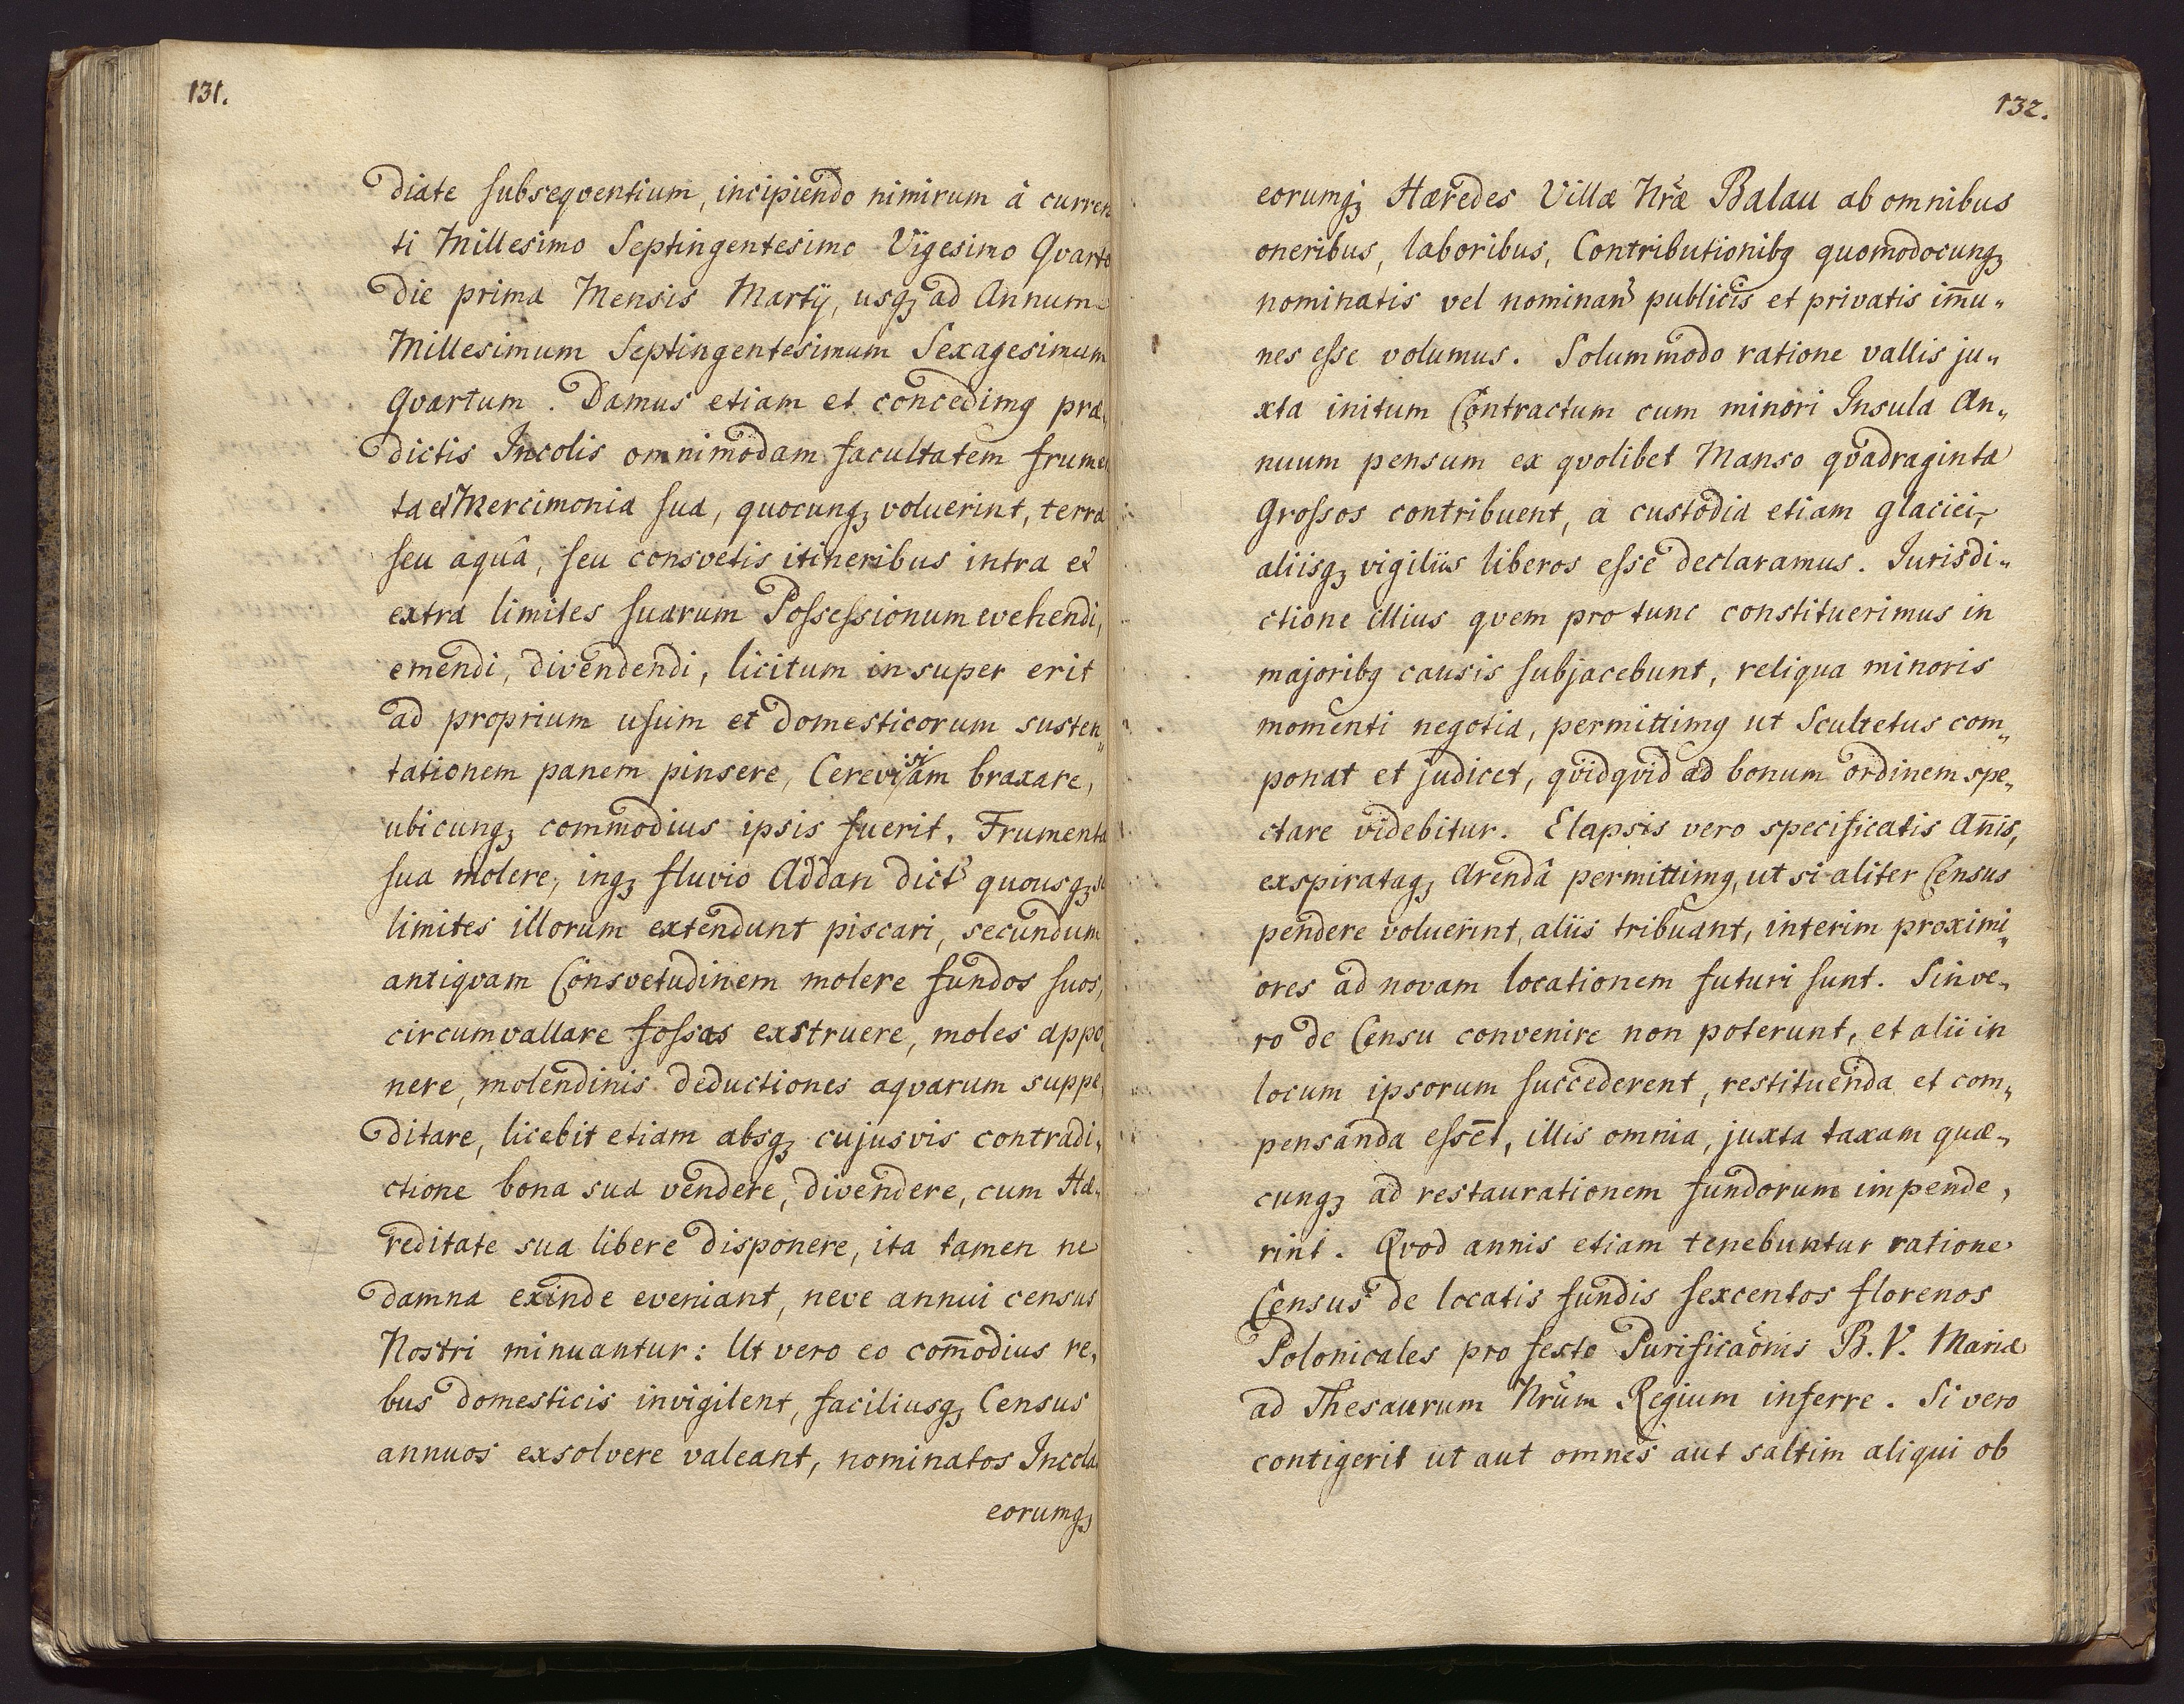 131.
diate subseqventium, incipiendo nimirum à curren
ti Millesimo Septingentesimo Vigesimo Qvarto
die prima Mensis Martÿ, usq₃ ad Annum
Millesimum Septingentesimum Sexagesimum
Qvartum. Damus etiam et concedimꝯ præ„
dictis Incolis omnimodam facultatem frumen
ta et Mercimonia sua, quocunq₃ voluerint, terra
seu aquâ, seu consvetis itineribus intra et
extra limites suarum Possessionum evehendi,
emendi, divendendi, licitum insuper erit
ad proprium usum et domesticorum susten„
tationem panem pinsere, Cerevisiam braxare,
ubicunq₃ commodius ipsis fuerit. Frumenta
sua molere, inq₃ fluvio Addan dict quousq₃ se
limites illorum extendunt piscari, secundum
antiqvam Consvetudinem molere fundos suos,
circumvallare fossas exstruere, moles appo„
nere, molendinis deductiones aqvarum suppe„
ditare, licebit etiam absq₃ cujusvis contradi„
ctione bona sua vendere, divendere, cum Hæ„
reditate sua libere disponere, ita tamen ne
damna exinde eveniant, neve annui census
Nostri minuantur: Ut vero eo com̄odius re„
bus domesticis invigilent, faciliusq₃ Census
annuos exsolvere valeant, nominatos Incola
eorumq₃
132.
eorumq₃ Hæredes Villæ Nræ Balau ab omnibus
oneribus, laboribus, Contributionibꝯ quomodocunq₃
nominatis vel nominan publicis et privatis im̄u„
nes esse volumus. Solummodo ratione vallis ju„
xta initum Contractum cum minori Insula An„
nuum pensum ex qvolibet Manso qvadraginta
Grossos contribuent, a custodia etiam glaciei,
aliisq₃ vigiliis liberos esse declaramus. Jurisdi„
ctione illius qvem pro tunc constituerimus in
majoribꝯ causis subjacebunt, reliqua minoris
momenti negotia, permittimꝯ ut Scultetus com„
ponat et judicet, qvidqvid ad bonum ordinem spe„
ctare videbitur. Elapsis vero specificatis An̄is,
exspirataq₃ Arendâ permittimꝯ, ut si aliter Census
pendere voluerint, aliis tribuant, interim proximi„
ores ad novam locationem futuri sunt. Sin ve„
ro de Censu convenire non poterunt, et alii in
locum ipsorum succederent, restituenda et com„
pensanda essēt, illis omnia, juxta taxam quæ„
cunq₃ ad restaurationem fundorum impende„
rint. Qvod annis etiam tenebuntur ratione
Census de locatis fundis sexcentos florenos
Polonicales pro festo Purificaōnis B. V. Mariæ
ad Thesaurum Nrum Regium inferre. Si vero
contigerit ut aut omnes aut saltim aliqui ob